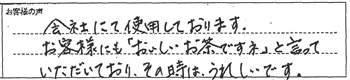 お客様の声
会社にて使用しております。
お客様にも「おいしいお茶ですネ」と言って
いただいており、その時は、うれしいです。